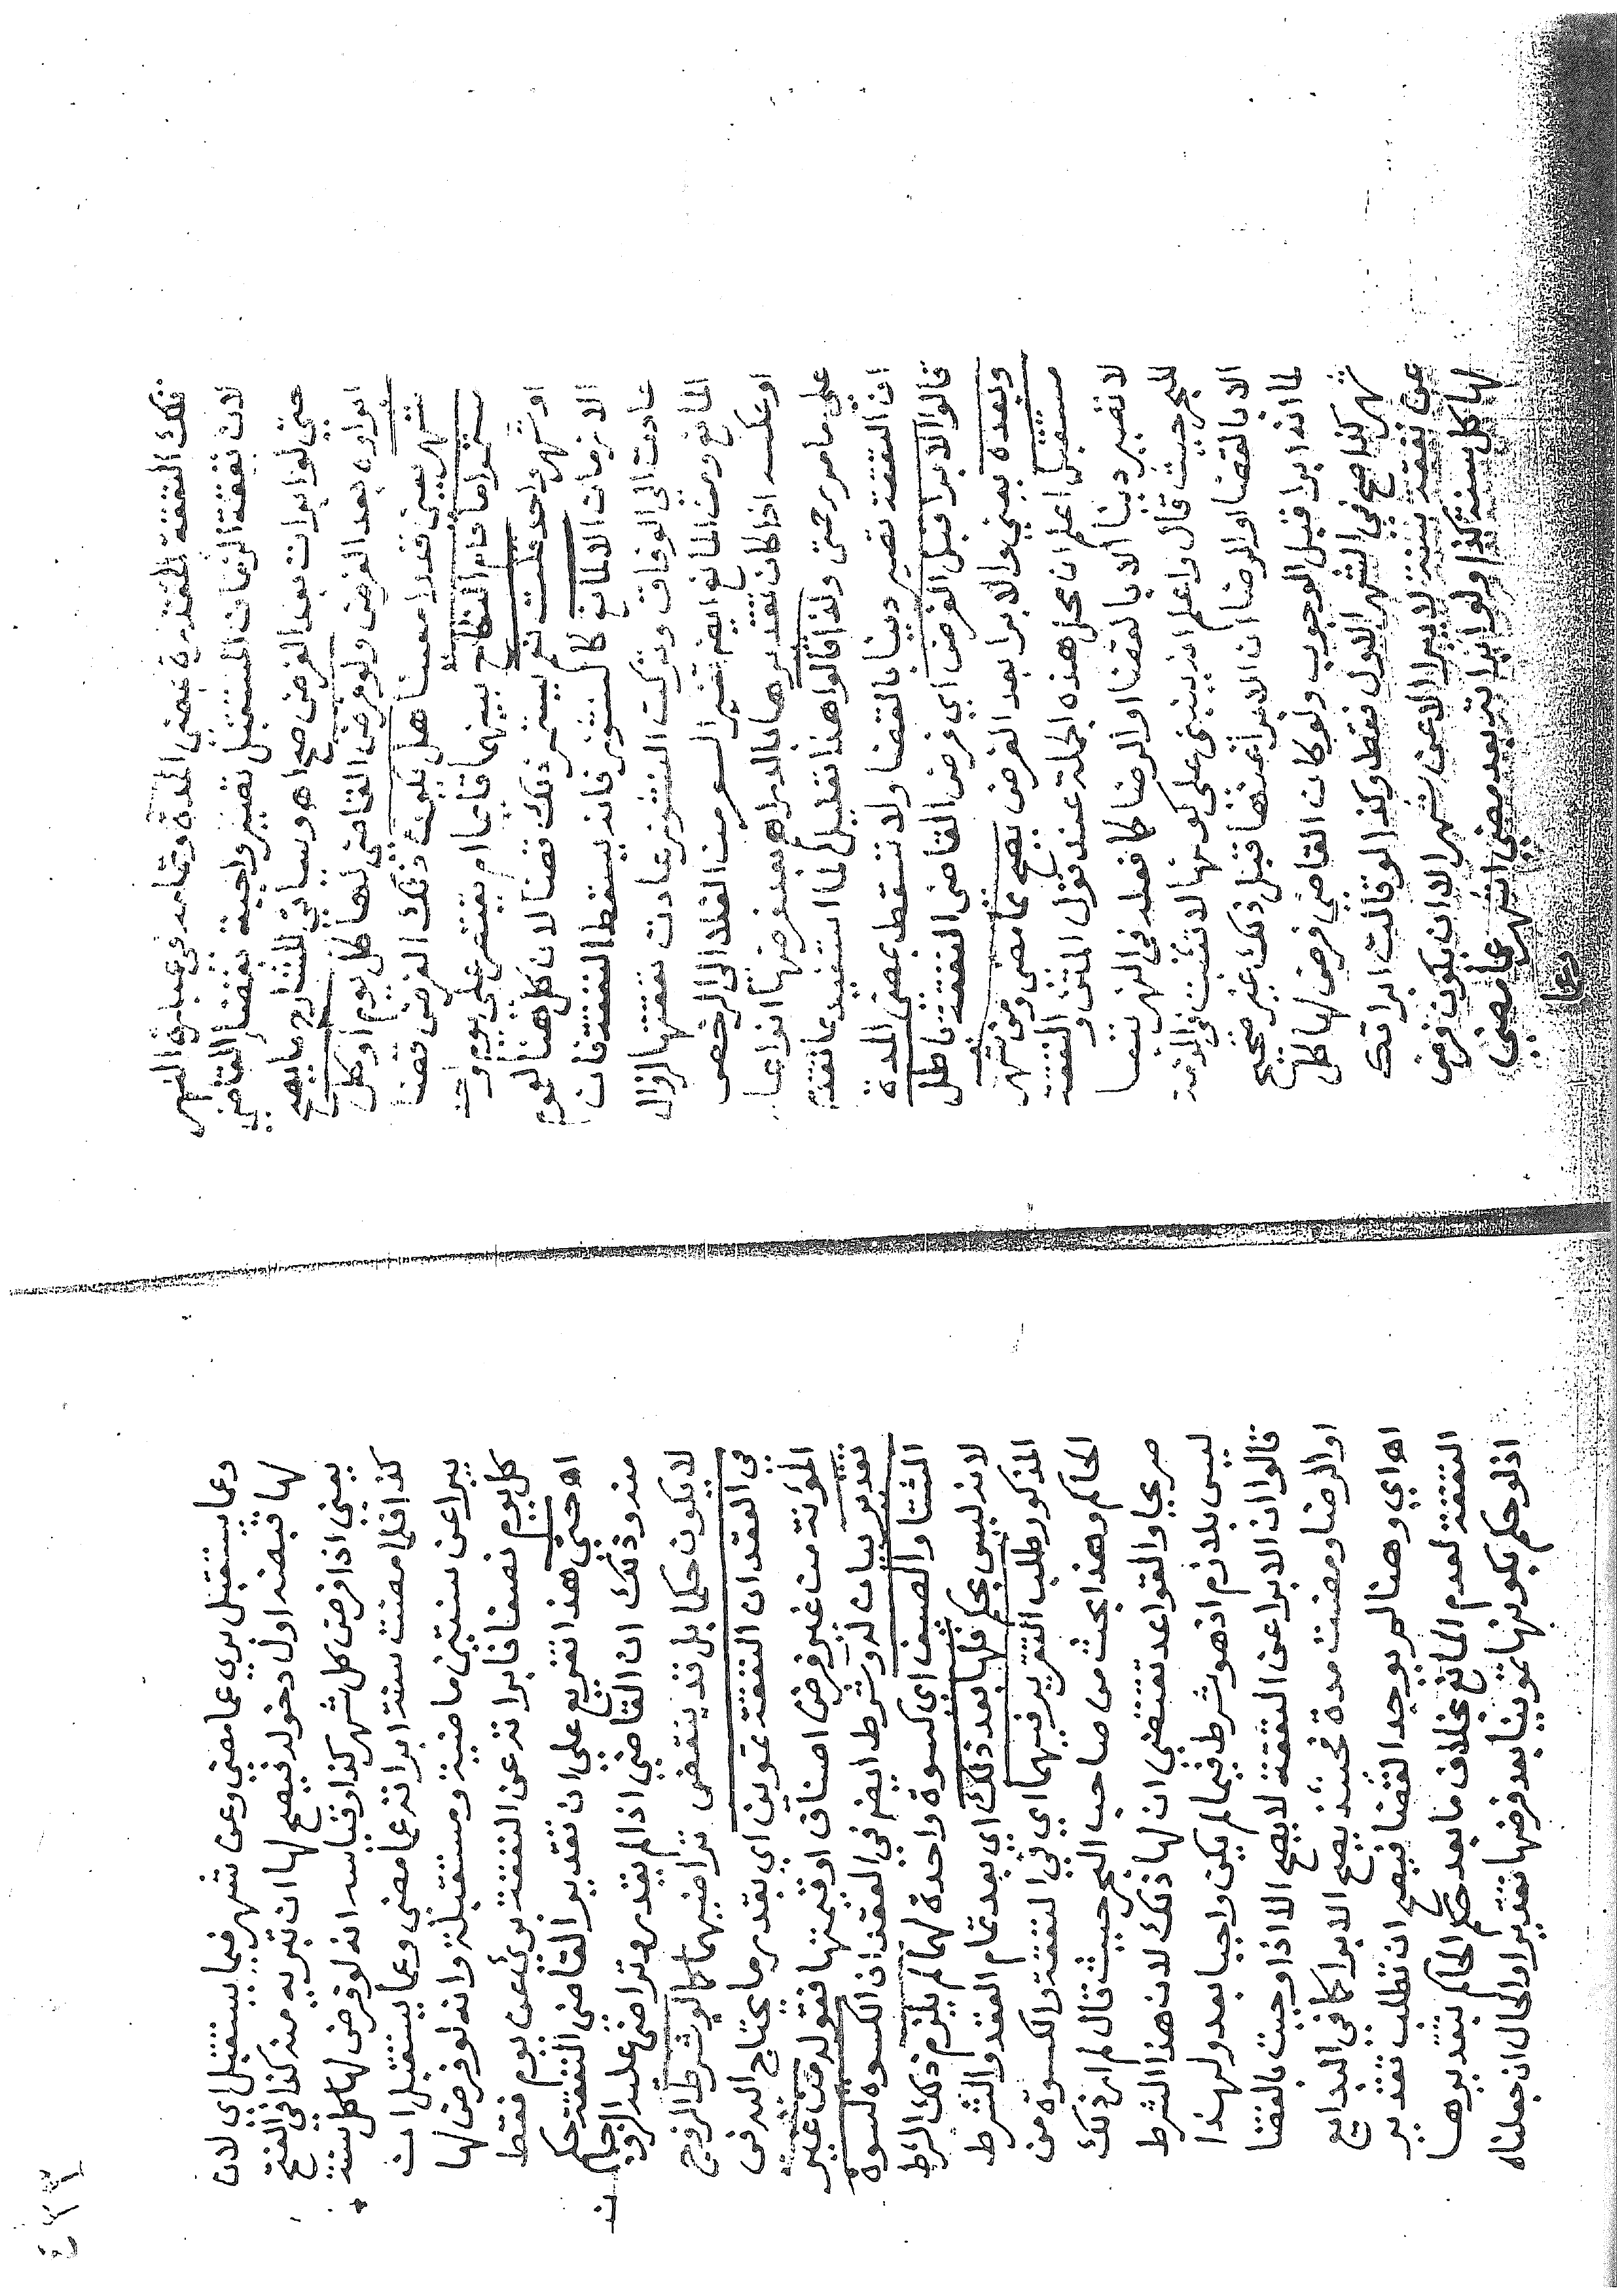 تلك النفقة المقدرة بمضي المدة وتمامه في عبارة النهر
لان نفقة الزمان المستقبل تصير واجبة بقضا القاضي
حتى لو ابرات بعد الفرض صح اهـ وسياتي للشارح ما يصح
ابراوه بعد الفرض ولو فرض القاضي لها كل يوم او كل
شهر يعني قدرا معينا هل يكون ذلك الفرض قضا
ما دام النكاح بينهما قايما ام يقتصر على يوم
او شهر واحد قلت نعم يستمر ذلك قضا لان كل هنا لعموم
الازمان الا لمانع كالنشوز فانه يسقط النفقة فان
عادت الى الوفاق وتركت النشوز عادت نفقتها لزوال
المانع ومن المانع ايضم تغير السعر من الغلا الى الرخص
او عكسه اذا كان تقديرها بالدراهم بعد فرضها انواعا
على ما مر رحمتي ولذا قالوا هذا تعليل لما استفيد مما تقدم
ان النفقة تصير دينا بالقضا ولا تسقط بمضي المدة
قالوا الابرا قبل الفرض اي فرض القاضي النفقة باطل
وبعده يعني والابرا بعد الفرض يصح مما مضى ومن شهر
مستقبل اعلم ان محل هذه الجملة عند قول المتن والنفقة
لا تصير دينا الا بالقضا او الرضا كما فعله في النهر تبعا
للبحر حيث قال واعلم انه ينبني على كونها لا تثبت في الذمة
الا بالقضا او الرضا ان الابرا عنها قبل ذلك غير صحيح
لما انه ابرا قبل الوجوب ولو كان القاضي فرض لها كل
شهر كذا صح في الشهر الاول فقط وكذا لو قالت ابراتك
عن نفقة سنة لا يبرا الا عن شهر الا ان يكون فرض
لها كل سنة كذا ولو ابراته بعد مضي اشهر عما مضى
وعما
وعما يستقبل بري عما مضى وعن شهر فما يستقبل اي لان
لها قبضه اول دخوله فيصح لها ان تبريه منه كذا في الفتح
يعني اذا فرض كل شهر كذا وقياسه انه لو فرض لها كل سنة
كذا فلما مضت سنة ابراته عما مضى وعما يستقبل ان
يبرا عن سنتين ماضية ومستقبلة وانه لو فرض لها
كل يوم نصفا فابراته عن النفقة بري عن يوم فقط
اهـ حتى هذا تفريع على ان تقدير القاضي النفقة حكم
منه وذلك ان القاضي اذا لم يقدره وتراضى عليه الزوجان
لا يكون حكما بل قد ينقضي تراضيهما كما لو شرط الزوج
في العقد ان النفقة تموين اي بقدر ما يحتاج اليه في
المؤنة من غير فرض اصناف او قيمتها فقوله من غير
تقدير بيان له وشرط ايضم في العقد ان الكسوة كسوة
الشتا والصيف اي كسوة واحدة لهما لم يلزم ذلك الشرط
لانه ليس بحكم فلها بعد ذلك اي بعد تمام العقد والشرط
المذكور طلب التقرير فيهما اي في النفقة والكسوة من
الحاكم وهذا بحث من صاحب البحر حيث قال لم ار ذلك
صريحا والقواعد تقتضي ان لها ذلك لان هذا الشرط
ليس بلازم اذ هو شرط فيما لم يكن واجبا بعد ولهذا
قالوا ان الابرا عن النفقة لا يصح الا اذا وجبت بالقضا
او الرضا ومضت مدة فحينئذ يصح الابرا كما في البدايع
اهـ اي وهنا لم يوجد القضا فيصح ان تطلب تقدير
النفقة لعدم المانع بخلاف ما بعد حكم الحاكم بتقديرها
اذ لو حكم بكونها تموينا بعد فرضها تقديرا والحال ان جعلناه